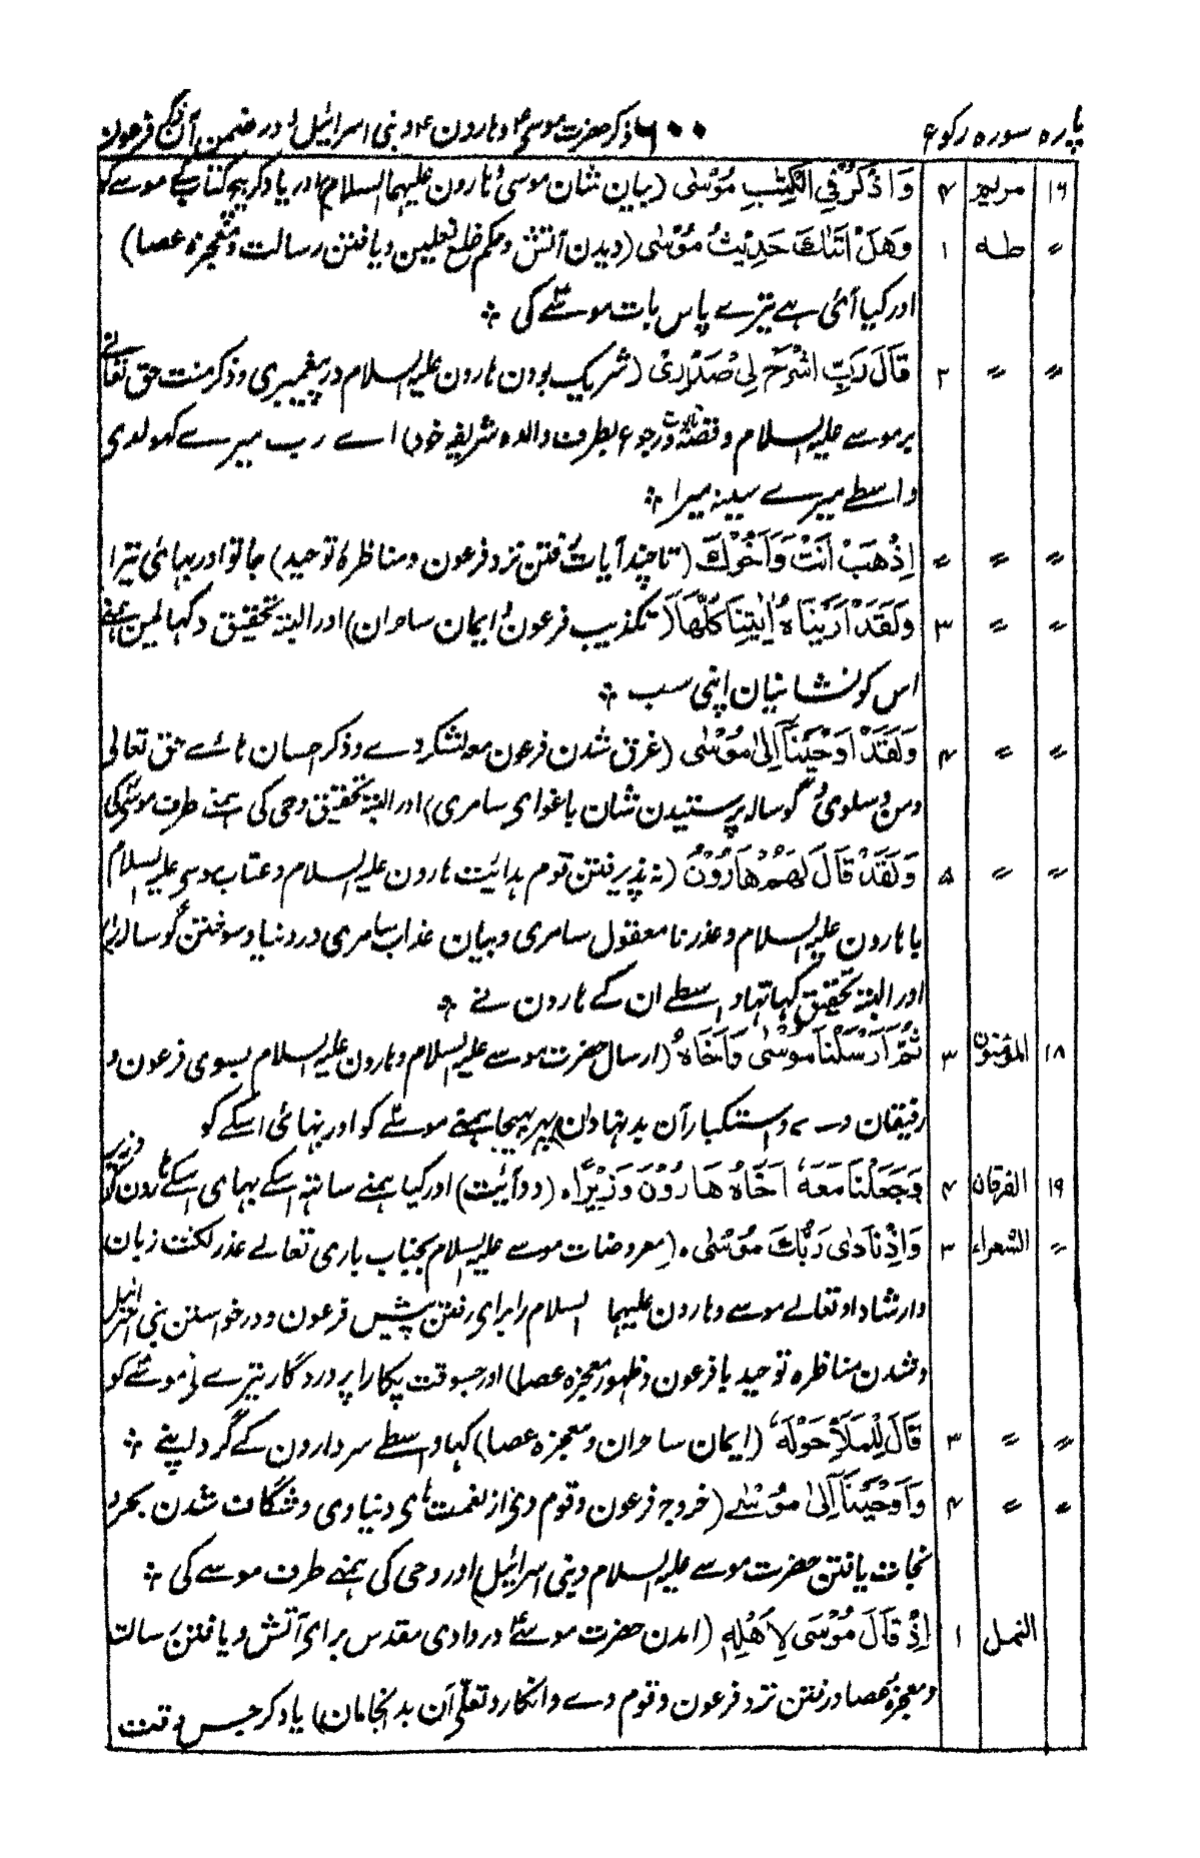 پارہ سورہ رکوع ۶۰۰ ذکر حضرت موسیٰ و ہارون و بنی اسرائیل و در ضمن آن ذکر فرعون
۱۶ مریم ۴ وَاذْكُرْ فِي الْكِتٰبِ مُوْسٰى (بیان شان موسیٰ و ہارون علیہما السلام) اور یاد کر بیچ کتاب کے موسے کو
〃 طہ ۱ وَهَلْ اَتٰىكَ حَدِيْثُ مُوْسٰى (دیدن آتش و حکم خلع نعلین و یافتن رسالت و معجزہ عصا)
اور کیا آئی ہے تیرے پاس بات موسےٰ کی ؞
〃 〃 ۲ قَالَ رَبِّ اشْرَحْ لِيْ صَدْرِيْ (شریک بودن ہارون علیہ السلام در پیغمبری و ذکر منت حق تعالےٰ
بر موسے علیہ السلام و قصہ ورجوع بطرف والدہ شریفہ خود) اے رب میرے کھولدی
واسطے میرے سینہ میرا ؞
〃 〃 〃 اِذْهَبْ اَنْتَ وَاَخُوْكَ (تا چند آیات رفتن نزد فرعون و مناظرہ توحید) جا تو اور بہائی تیرا
〃 〃 ۳ وَلَقَدْ اَرَيْنَاهُ اٰيٰتِنَا كُلَّهَا (تکذیب فرعون و ایمان ساحران) اور البتہ تحقیق دکہائین ہمنے
اس کو نشانیان اپنی سب ؞
〃 〃 ۴ وَلَقَدْ اَوْحَيْنَآ اِلٰى مُوْسٰى (غرق شدن فرعون معہ لشکر دے و ذکر احسان ہائے حق تعالی
و من و سلوی و گوسالہ پرستیدن شان باغوای سامری) اور البتہ تحقیق وحی کی ہمنے طرف موسیٰ کی
〃 〃 ۵ وَلَقَدْ قَالَ لَهُمْ هَارُوْنُ (نہ پذیرفتن قوم ہدائیت ہارون علیہ السلام و عتاب موسی علیہ السلام
با ہارون علیہ السلام و عذر نامعقول سامری و بیان عذاب سامری در دنیا و سوختن گوسالہ را)
اور البتہ تحقیق کہا تہا واسطے ان کے ہارون نے ؞
۱۸ المؤمنون ۳ ثُمَّ اَرْسَلْنَا مُوْسٰى وَاَخَاهُ (ارسال حضرت موسے علیہ السلام و ہارون علیہ السلام بسوی فرعون و
رفیقان وے و استکبار آن بدنہادان) پہر بہیجا ہمنے موسےٰ کو اور بہائی اسکے کو
۱۹ الفرقان ۴ وَجَعَلْنَا مَعَهٗ اَخَاهُ هَارُوْنَ وَزِيْرًا۔ (دو آئیت) اور کیا ہمنے ساتہہ اسکے بہای اسکے ہارون کو وزیر
〃 الشعراء ۲ وَاِذْ نَادٰى رَبُّكَ مُوْسٰى۔ (معروضات موسے علیہ السلام بجناب باری تعالے عذر لکنت زبان
و ارشاد او تعالے موسے و ہارون علیہما السلام را برای رفتن پیش فرعون و درخواستن بنی اسرائیل
و شدن مناظرہ توحید با فرعون و ظہور معجزہ عصا) اور جسوقت پکارا پروردگار تیرے نے موسےٰ کو
〃 〃 ۳ قَالَ لِلْمَلَاِ حَوْلَهٗ (ایمان ساحران و معجزہ عصا) کہا واسطے سردارون کے گرد اپنے ؞
〃 〃 ۴ وَاَوْحَيْنَآ اِلٰى مُوْسٰى (خروج فرعون و قوم وی از نعمت ہای دنیاوی و شگاف شدن بحر و
نجات یافتن حضرت موسے علیہ السلام و بنی اسرائیل) اور وحی کی ہمنے طرف موسے کی ؞
النمل ۱ اِذْ قَالَ مُوْسٰى لِاَهْلِهٖ (امدن حضرت موسےٰ در وادی مقدس برای آتش و یافتن رسالت
و معجزہ عصا و رفتن نزد فرعون و قوم دے و انکار و تعلّی آن بد انجامان) یاد کر جس وقت